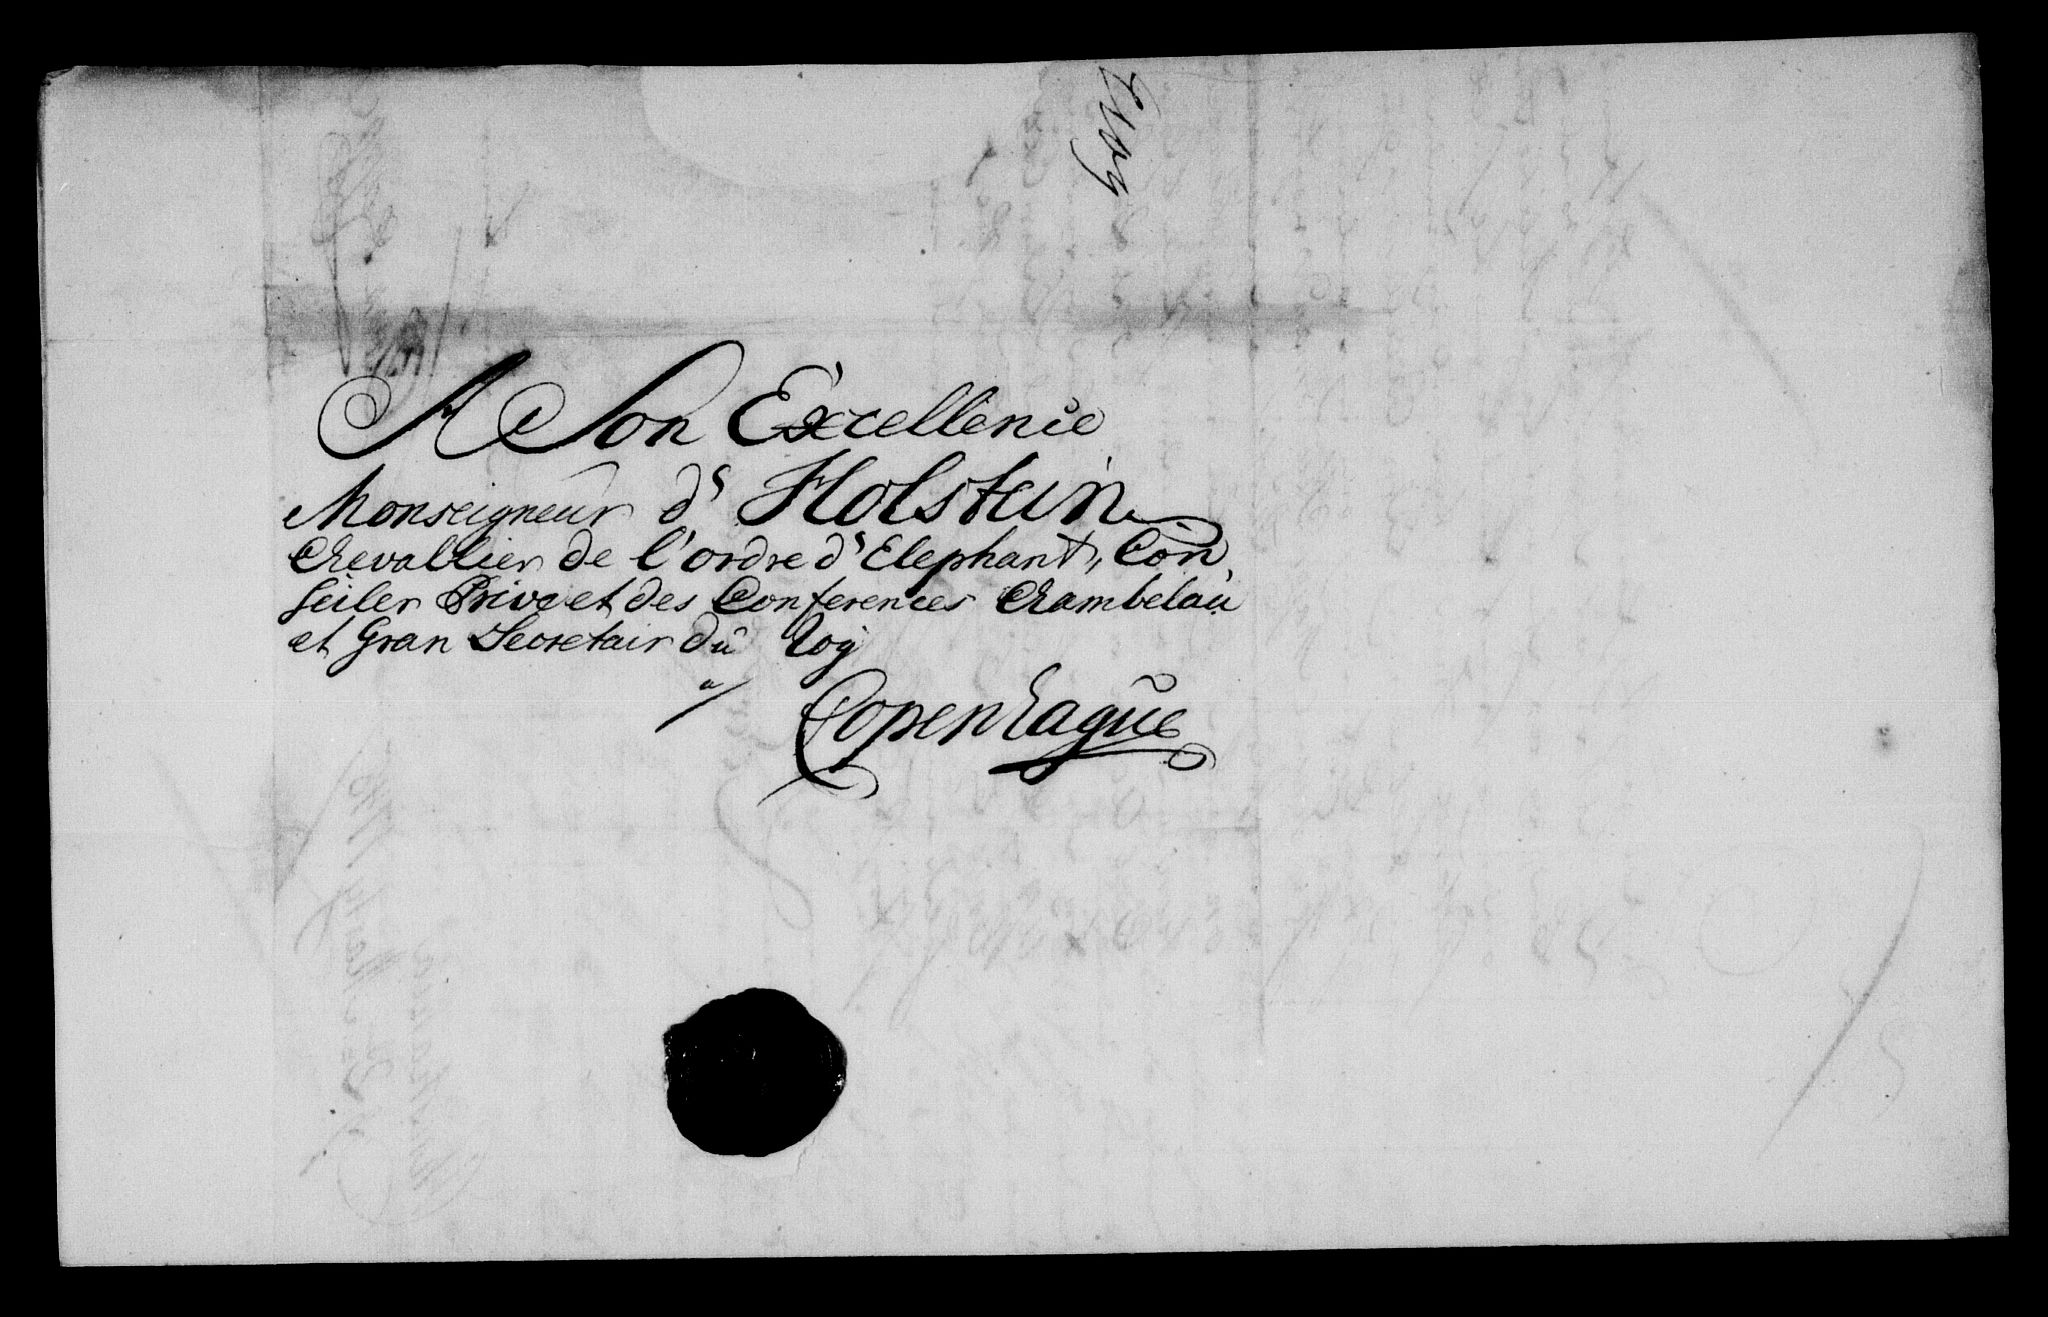 A Son Excellence
Monseigneur d' Holstein
Chevallier de l'ordre d'Elephant, Con,
seiler Privé et des Conferences Chambelau
et Gran Secretair du Roy
a/ Copenhague